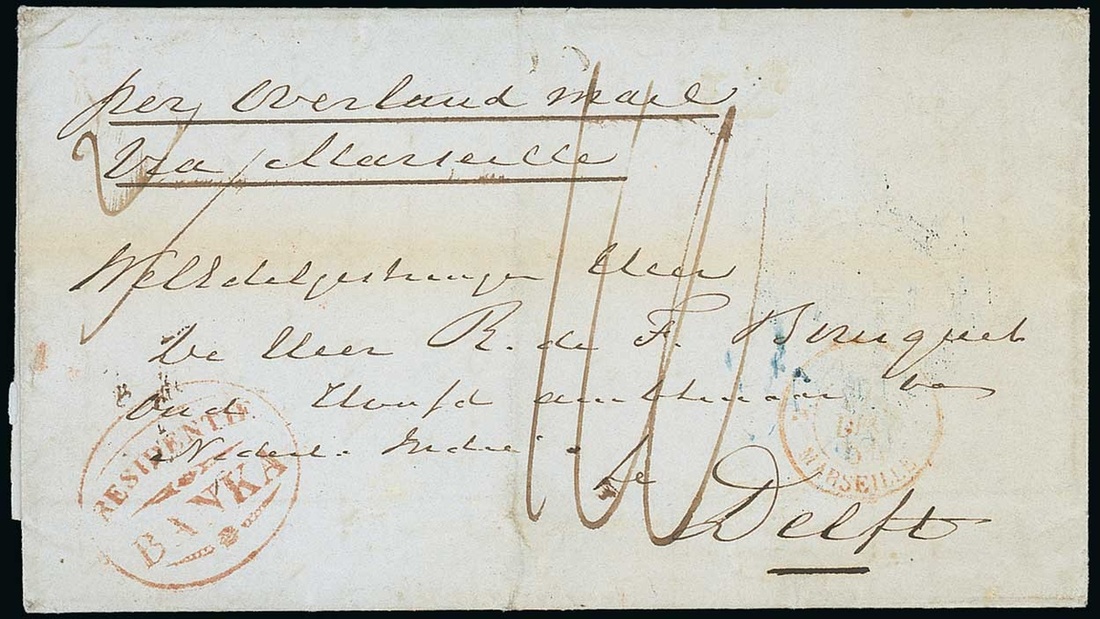 per Overland mail
Via Marseille
WelEdelgestrenger Heer
De Heer R. de F. Bouquet
Oud Hoofd ambtenaar van
Nederl. Indie.
te
Delft
RESIDENTIE
BANKA
MARSEILLE